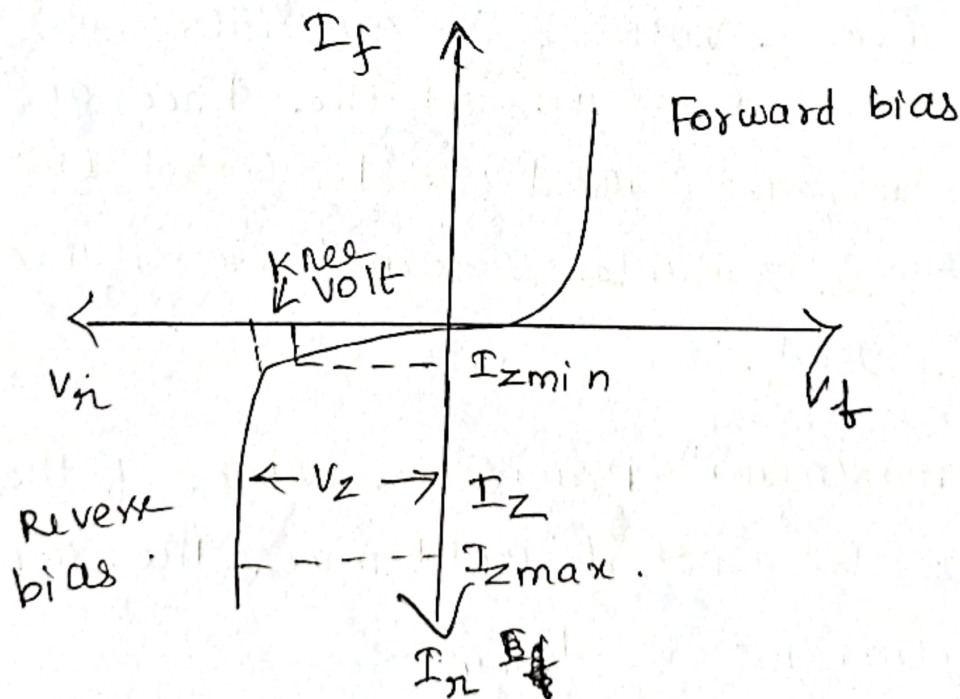 I_f
Forward bias
Knee
volt
V_r
I_zmin
V_f
← V_z →
I_z
Reverse
bias.
I_zmax.
I_r